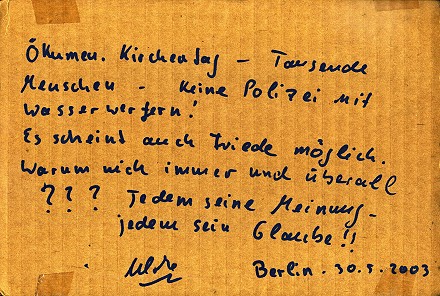 Ökumen. Kirchentag - Tausende
Menschen - keine Polizei mit
Wasserwerfern!
Es scheint auch Friede möglich.
Warum nich immer und überall
? ? ? Jedem seine Meinung -
jedem sein Glaube!!
Berlin. 30.5.2003